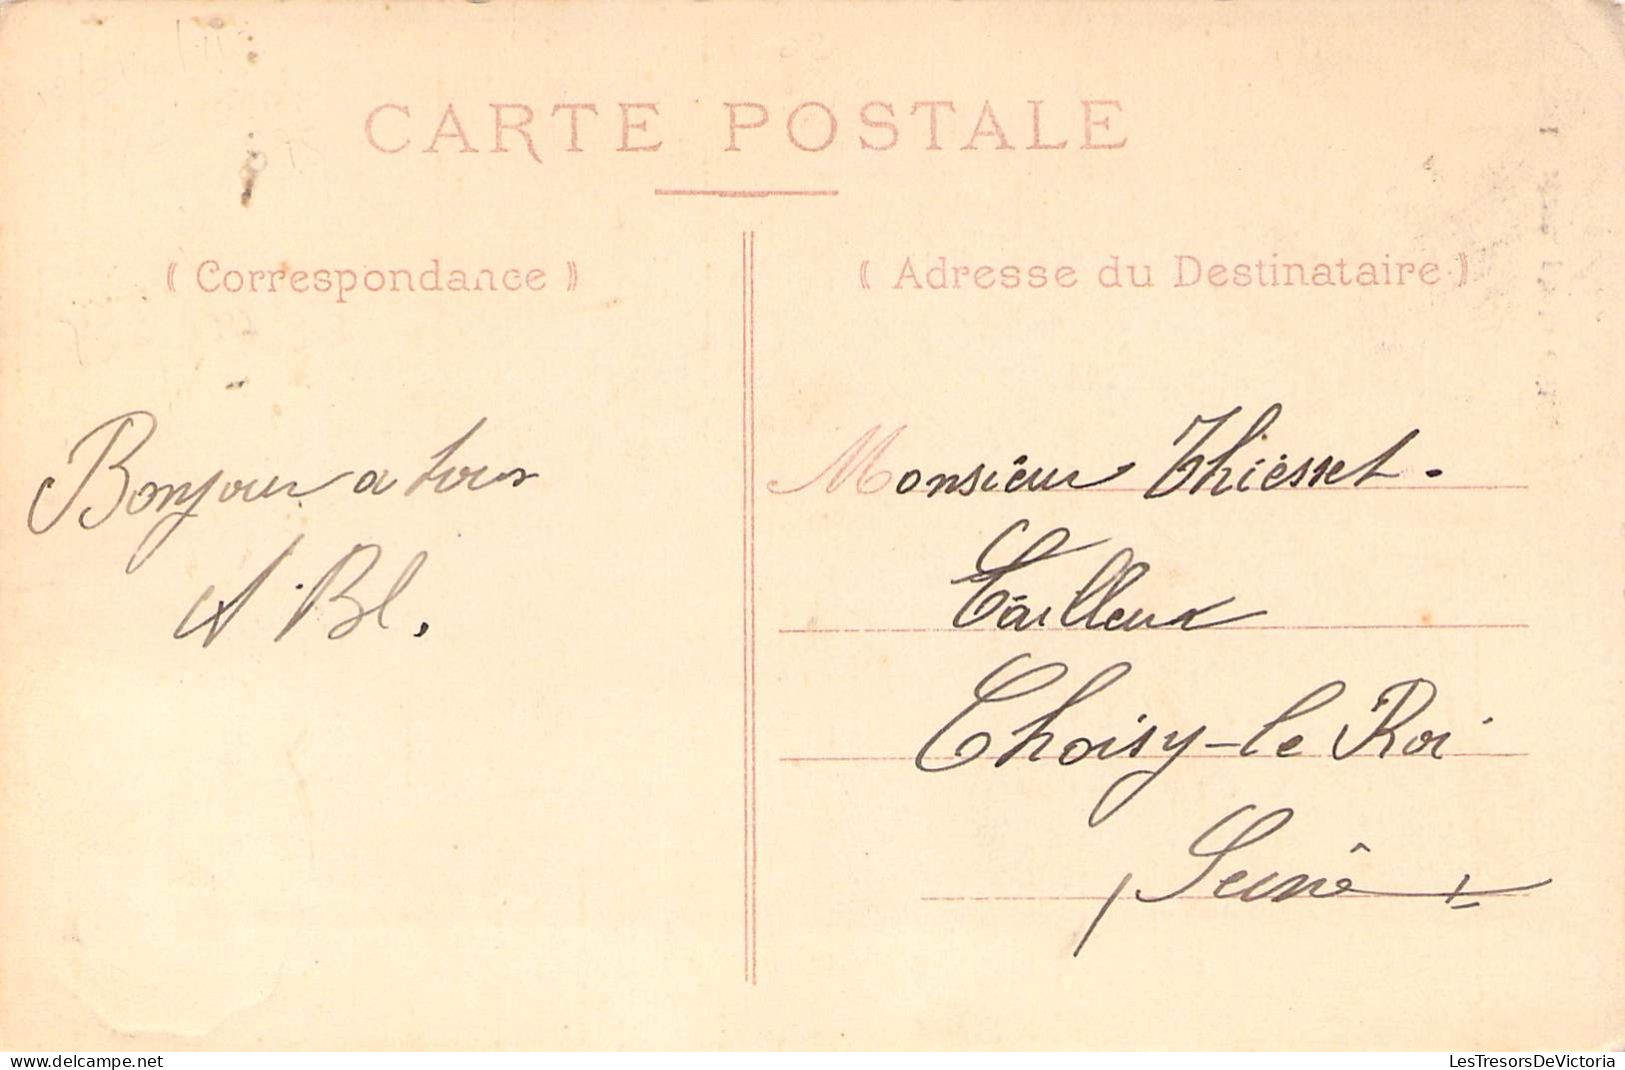 CARTE POSTALE
(Correspondance)
(Adresse du Destinataire)
Bonjour a tous
A. Bl.
Monsieur Thiesset.
Tailleur
Choisy-le Roi
(Seine)
delcampe.net
LesTresorsDeVictoria